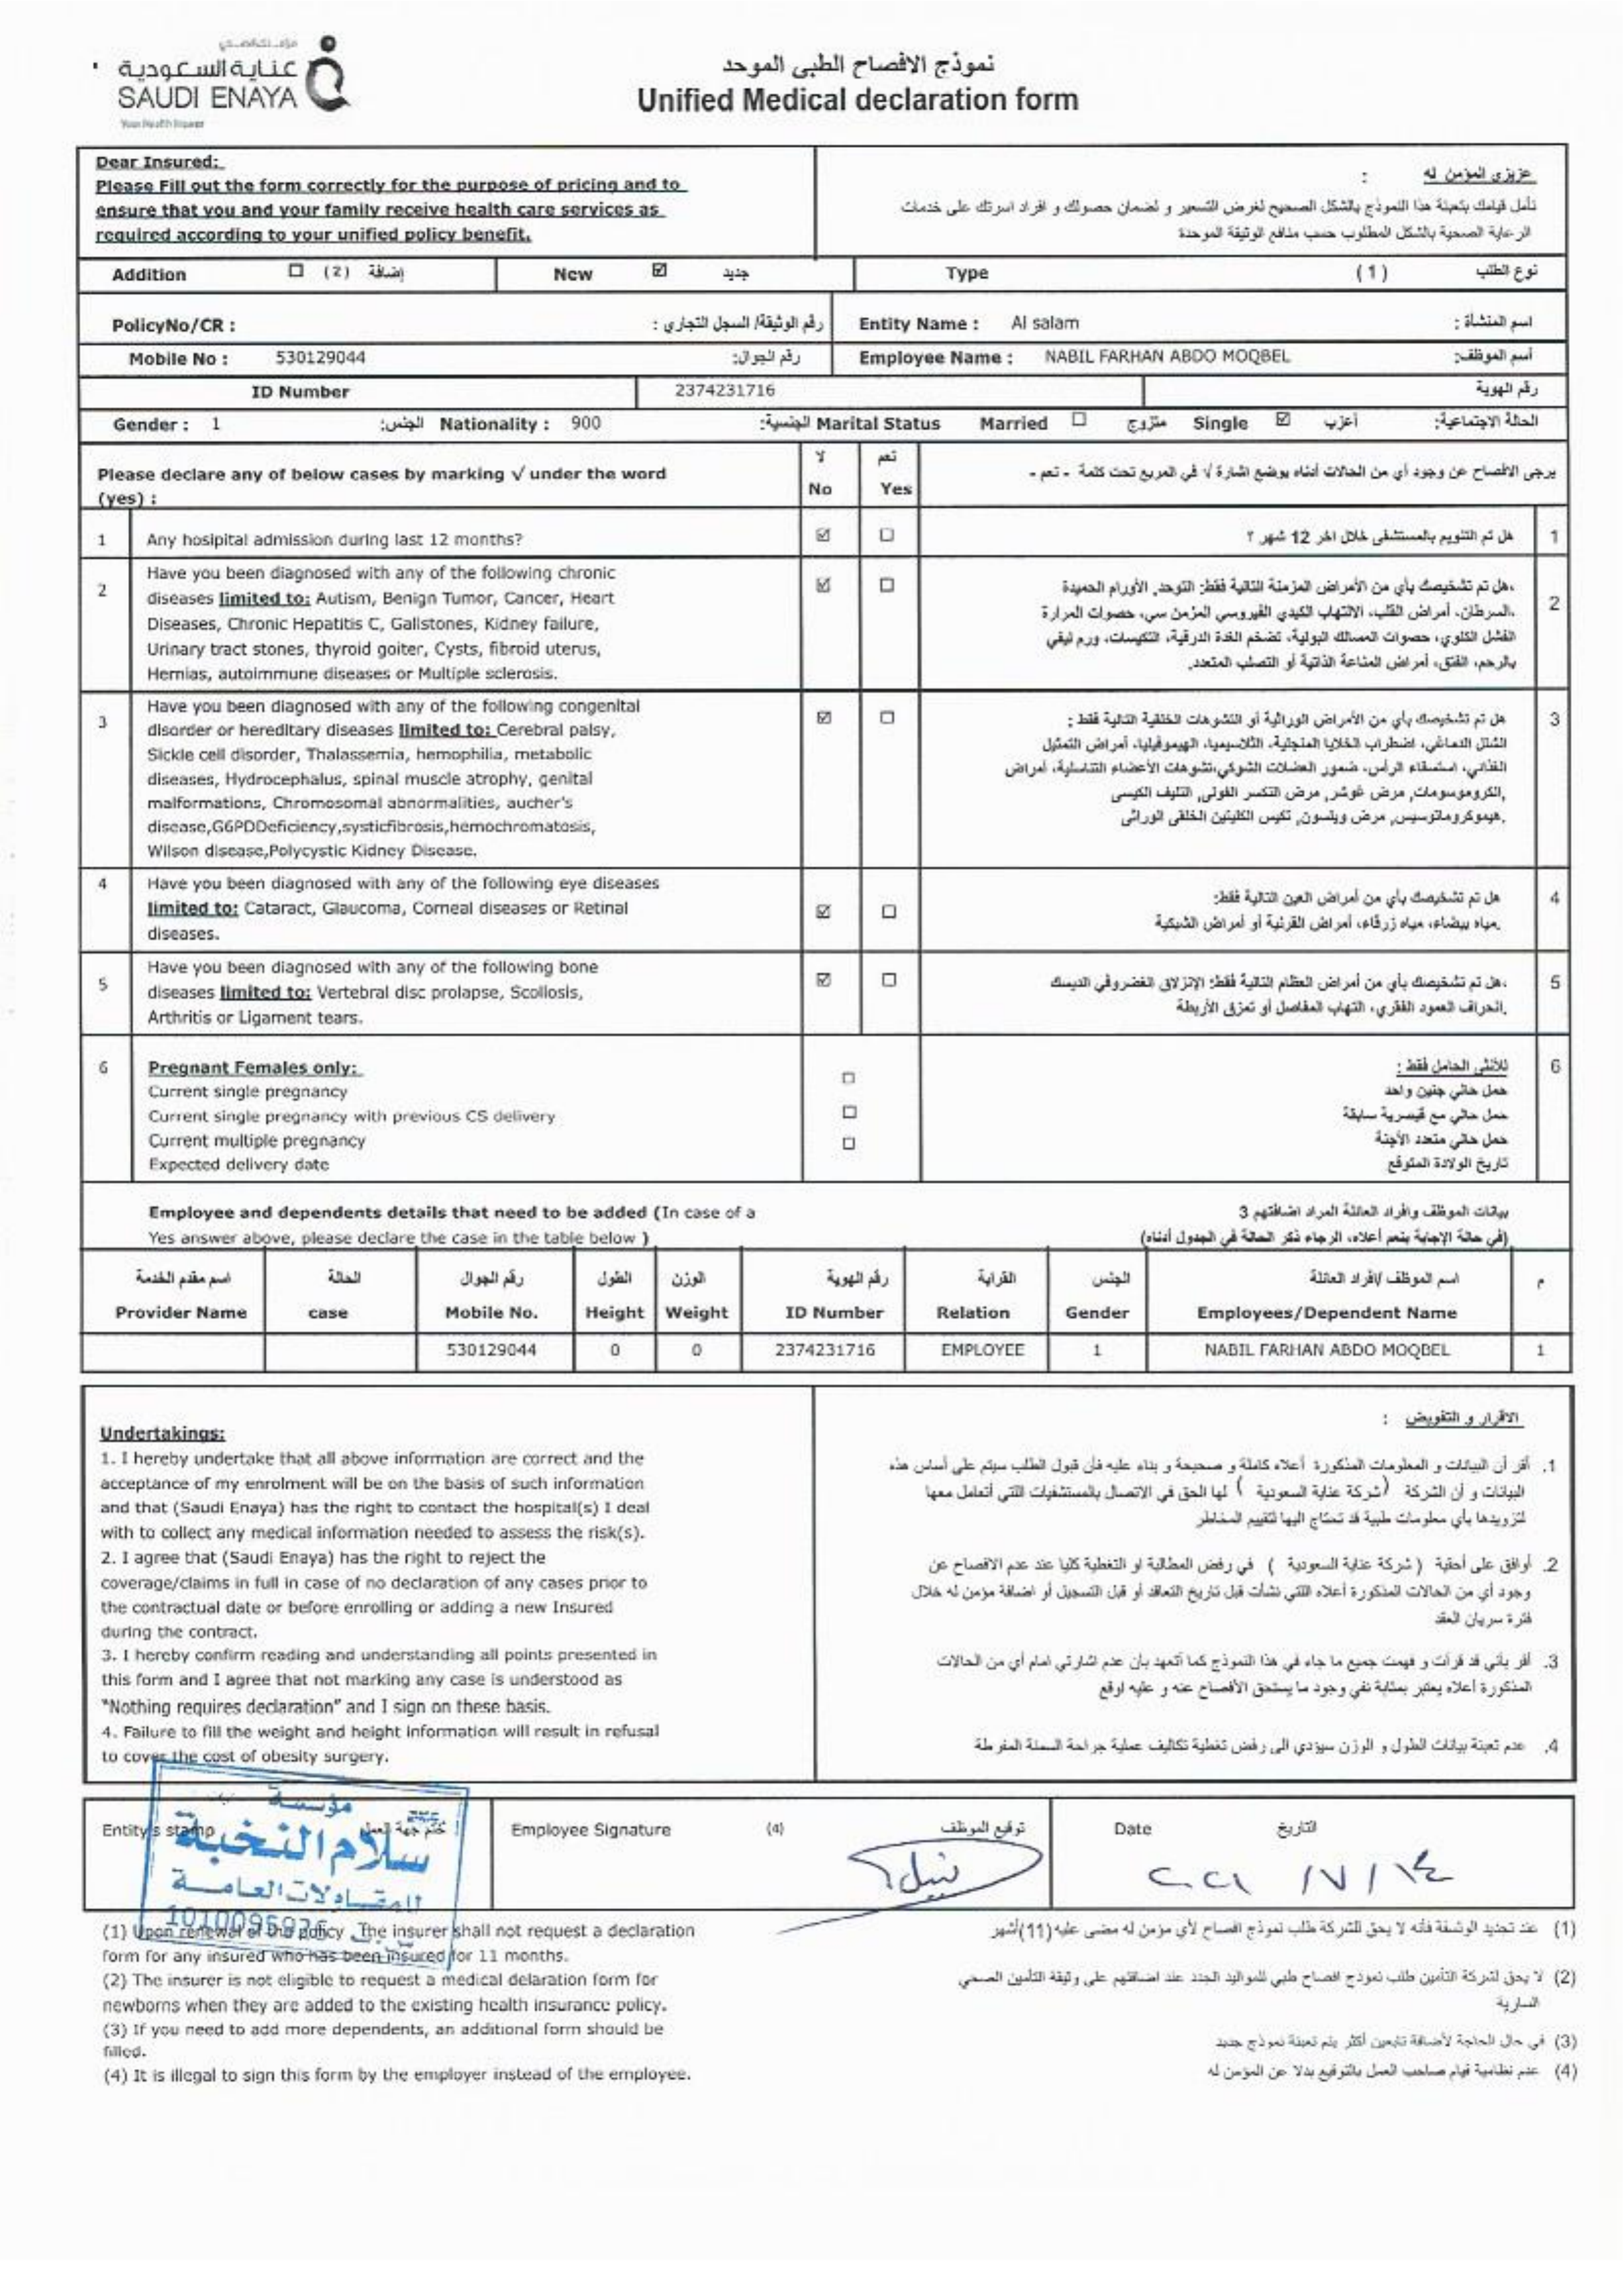 عناية السعودية
SAUDI ENAYA
Your Health Insurer
نموذج الافصاح الطبي الموحد
Unified Medical declaration form
Dear Insured:
Please Fill out the form correctly for the purpose of pricing and to
ensure that you and your family receive health care services as
required according to your unified policy benefit.
عزيزي المؤمن له :
نأمل قيامك بتعبئة هذا النموذج بالشكل الصحيح لغرض التسعير و لضمان حصولك و افراد اسرتك على خدمات
الرعاية الصحية بالشكل المطلوب حسب منافع الوثيقة الموحدة
Addition ☐ (2) إضافة New ☑ جديد Type (1) نوع الطلب
PolicyNo/CR : رقم الوثيقة/ السجل التجاري : Entity Name : Al salam اسم المنشأة :
Mobile No : 530129044 رقم الجوال: Employee Name : NABIL FARHAN ABDO MOQBEL أسم الموظف:
ID Number 2374231716 رقم الهوية
Gender : 1 الجنس: Nationality : 900 الجنسية: Marital Status Married ☐ متزوج Single ☑ أعزب الحالة الاجتماعية:
Please declare any of below cases by marking √ under the word
(yes) :
لا نعم
No Yes
يرجى الافصاح عن وجود أي من الحالات أدناه بوضع اشارة √ في المربع تحت كلمة - نعم -
1 Any hosipital admission during last 12 months? ☑ ☐ هل تم التنويم بالمستشفى خلال اخر 12 شهر ؟ 1
2 Have you been diagnosed with any of the following chronic
diseases limited to: Autism, Benign Tumor, Cancer, Heart
Diseases, Chronic Hepatitis C, Gallstones, Kidney failure,
Urinary tract stones, thyroid goiter, Cysts, fibroid uterus,
Hernias, autoimmune diseases or Multiple sclerosis.
☑ ☐
هل تم تشخيصك بأي من الأمراض المزمنة التالية فقط: التوحد, الأورام الحميدة، 2
السرطان، أمراض القلب، الالتهاب الكبدي الفيروسي المزمن سي، حصوات المرارة،
الفشل الكلوي، حصوات المسالك البولية، تضخم الغدة الدرقية، التكيسات، ورم ليفي
بالرحم، الفتق، أمراض المناعة الذاتية أو التصلب المتعدد.
3 Have you been diagnosed with any of the following congenital
disorder or hereditary diseases limited to: Cerebral palsy,
Sickle cell disorder, Thalassemia, hemophilia, metabolic
diseases, Hydrocephalus, spinal muscle atrophy, genital
malformations, Chromosomal abnormalities, aucher's
disease,G6PDDeficiency,systicfibrosis,hemochromatosis,
Wilson disease,Polycystic Kidney Disease.
☑ ☐
هل تم تشخيصك بأي من الأمراض الوراثية أو التشوهات الخلقية التالية فقط : 3
الشلل الدماغي، اضطراب الخلايا المنجلية، الثلاسيميا، الهيموفيليا، أمراض التمثيل
الغذائي، استسقاء الرأس، ضمور العضلات الشوكي،تشوهات الأعضاء التناسلية، أمراض
الكروموسومات, مرض غوشر, مرض التكسر الفولي, التليف الكيسي,
هيموكروماتوسيس, مرض ويلسون, تكيس الكليتين الخلقي الوراثي.
4 Have you been diagnosed with any of the following eye diseases
limited to: Cataract, Glaucoma, Corneal diseases or Retinal
diseases.
☑ ☐
هل تم تشخيصك بأي من أمراض العين التالية فقط: 4
مياه بيضاء، مياه زرقاء، أمراض القرنية أو أمراض الشبكية.
5 Have you been diagnosed with any of the following bone
diseases limited to: Vertebral disc prolapse, Scoliosis,
Arthritis or Ligament tears.
☑ ☐
هل تم تشخيصك بأي من أمراض العظام التالية فقط: الإنزلاق الغضروفي الديسك، 5
إنحراف العمود الفقري، التهاب المفاصل أو تمزق الأربطة.
6 Pregnant Females only:
Current single pregnancy ☐
Current single pregnancy with previous CS delivery ☐
Current multiple pregnancy ☐
Expected delivery date
للأنثى الحامل فقط : 6
حمل حالي جنين واحد
حمل حالي مع قيصرية سابقة
حمل حالي متعدد الأجنة
تاريخ الولادة المتوقع
Employee and dependents details that need to be added (In case of a
Yes answer above, please declare the case in the table below )
بيانات الموظف وافراد العائلة المراد اضافتهم 3
(في حالة الإجابة بنعم أعلاه، الرجاء ذكر الحالة في الجدول أدناه)
اسم مقدم الخدمة الحالة رقم الجوال الطول الوزن رقم الهوية القرابة الجنس اسم الموظف /افراد العائلة م
Provider Name case Mobile No. Height Weight ID Number Relation Gender Employees/Dependent Name
530129044 0 0 2374231716 EMPLOYEE 1 NABIL FARHAN ABDO MOQBEL 1
Undertakings:
1. I hereby undertake that all above information are correct and the
acceptance of my enrolment will be on the basis of such information
and that (Saudi Enaya) has the right to contact the hospital(s) I deal
with to collect any medical information needed to assess the risk(s).
2. I agree that (Saudi Enaya) has the right to reject the
coverage/claims in full in case of no declaration of any cases prior to
the contractual date or before enrolling or adding a new Insured
during the contract.
3. I hereby confirm reading and understanding all points presented in
this form and I agree that not marking any case is understood as
"Nothing requires declaration" and I sign on these basis.
4. Failure to fill the weight and height information will result in refusal
to cover the cost of obesity surgery.
الاقرار و التفويض :
1. أقر أن البيانات و المعلومات المذكورة أعلاه كاملة و صحيحة و بناء عليه فأن قبول الطلب سيتم على أساس هذه
البيانات و أن الشركة (شركة عناية السعودية ) لها الحق في الاتصال بالمستشفيات اللتي أتعامل معها
لتزويدها بأي معلومات طبية قد تحتاج اليها لتقييم المخاطر
2. أوافق على أحقية ( شركة عناية السعودية ) في رفض المطالبة او التغطية كليا عند عدم الافصاح عن
وجود أي من الحالات المذكورة أعلاه اللتي نشأت قبل تاريخ التعاقد أو قبل التسجيل أو اضافة مؤمن له خلال
فترة سريان العقد
3. أقر بأني قد قرأت و فهمت جميع ما جاء في هذا النموذج كما أتعهد بأن عدم اشارتي امام أي من الحالات
المذكورة أعلاه يعتبر بمثابة نفي وجود ما يستحق الأفصاح عنه و عليه اوقع
4. عدم تعبئة بيانات الطول و الوزن سيؤدي الى رفض تغطية تكاليف عملية جراحة السمنة المفرطة
Entity's stamp ختم جهة العمل Employee Signature (4) توقيع الموظف Date التاريخ
مؤسسة
سلام النخبة
للمقاولات العامة
نبيل
٢٠٢١ /٧/١٤
(1) Upon renewal of the policy ,The insurer shall not request a declaration
form for any insured who has been insured for 11 months.
(2) The insurer is not eligible to request a medical delaration form for
newborns when they are added to the existing health insurance policy.
(3) If you need to add more dependents, an additional form should be
filled.
(4) It is illegal to sign this form by the employer instead of the employee.
(1) عند تجديد الوثيقة فأنه لا يحق للشركة طلب نموذج افصاح لأي مؤمن له مضى عليه(11)أشهر
(2) لا يحق لشركة التأمين طلب نموذج افصاح طبي للمواليد الجدد عند اضافتهم على وثيقة التأمين الصحي
السارية
(3) في حال الحاجة لأضافة تابعين أكثر يتم تعبئة نموذج جديد
(4) عدم نظامية قيام صاحب العمل بالتوقيع بدلا عن المؤمن له